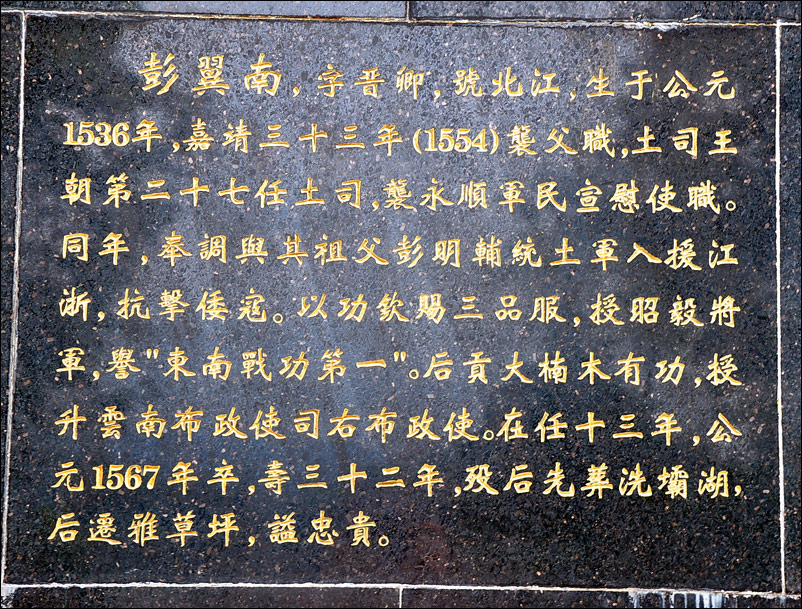 彭翼南，字晋卿，號北江，生于公元
1536年，嘉靖三十三年(1554)襲父職，土司王
朝第二十七任土司，襲永順軍民宣慰使職。
同年，奉調與其祖父彭明輔統土軍入援江
浙，抗擊倭寇。以功欽賜三品服，授昭毅將
軍，譽"東南戰功第一"。后貢大楠木有功，授
升雲南布政使司右布政使。在任十三年，公
元1567年卒，壽三十二年，殁后先葬洗壩湖，
后遷雅草坪，謚忠貴。